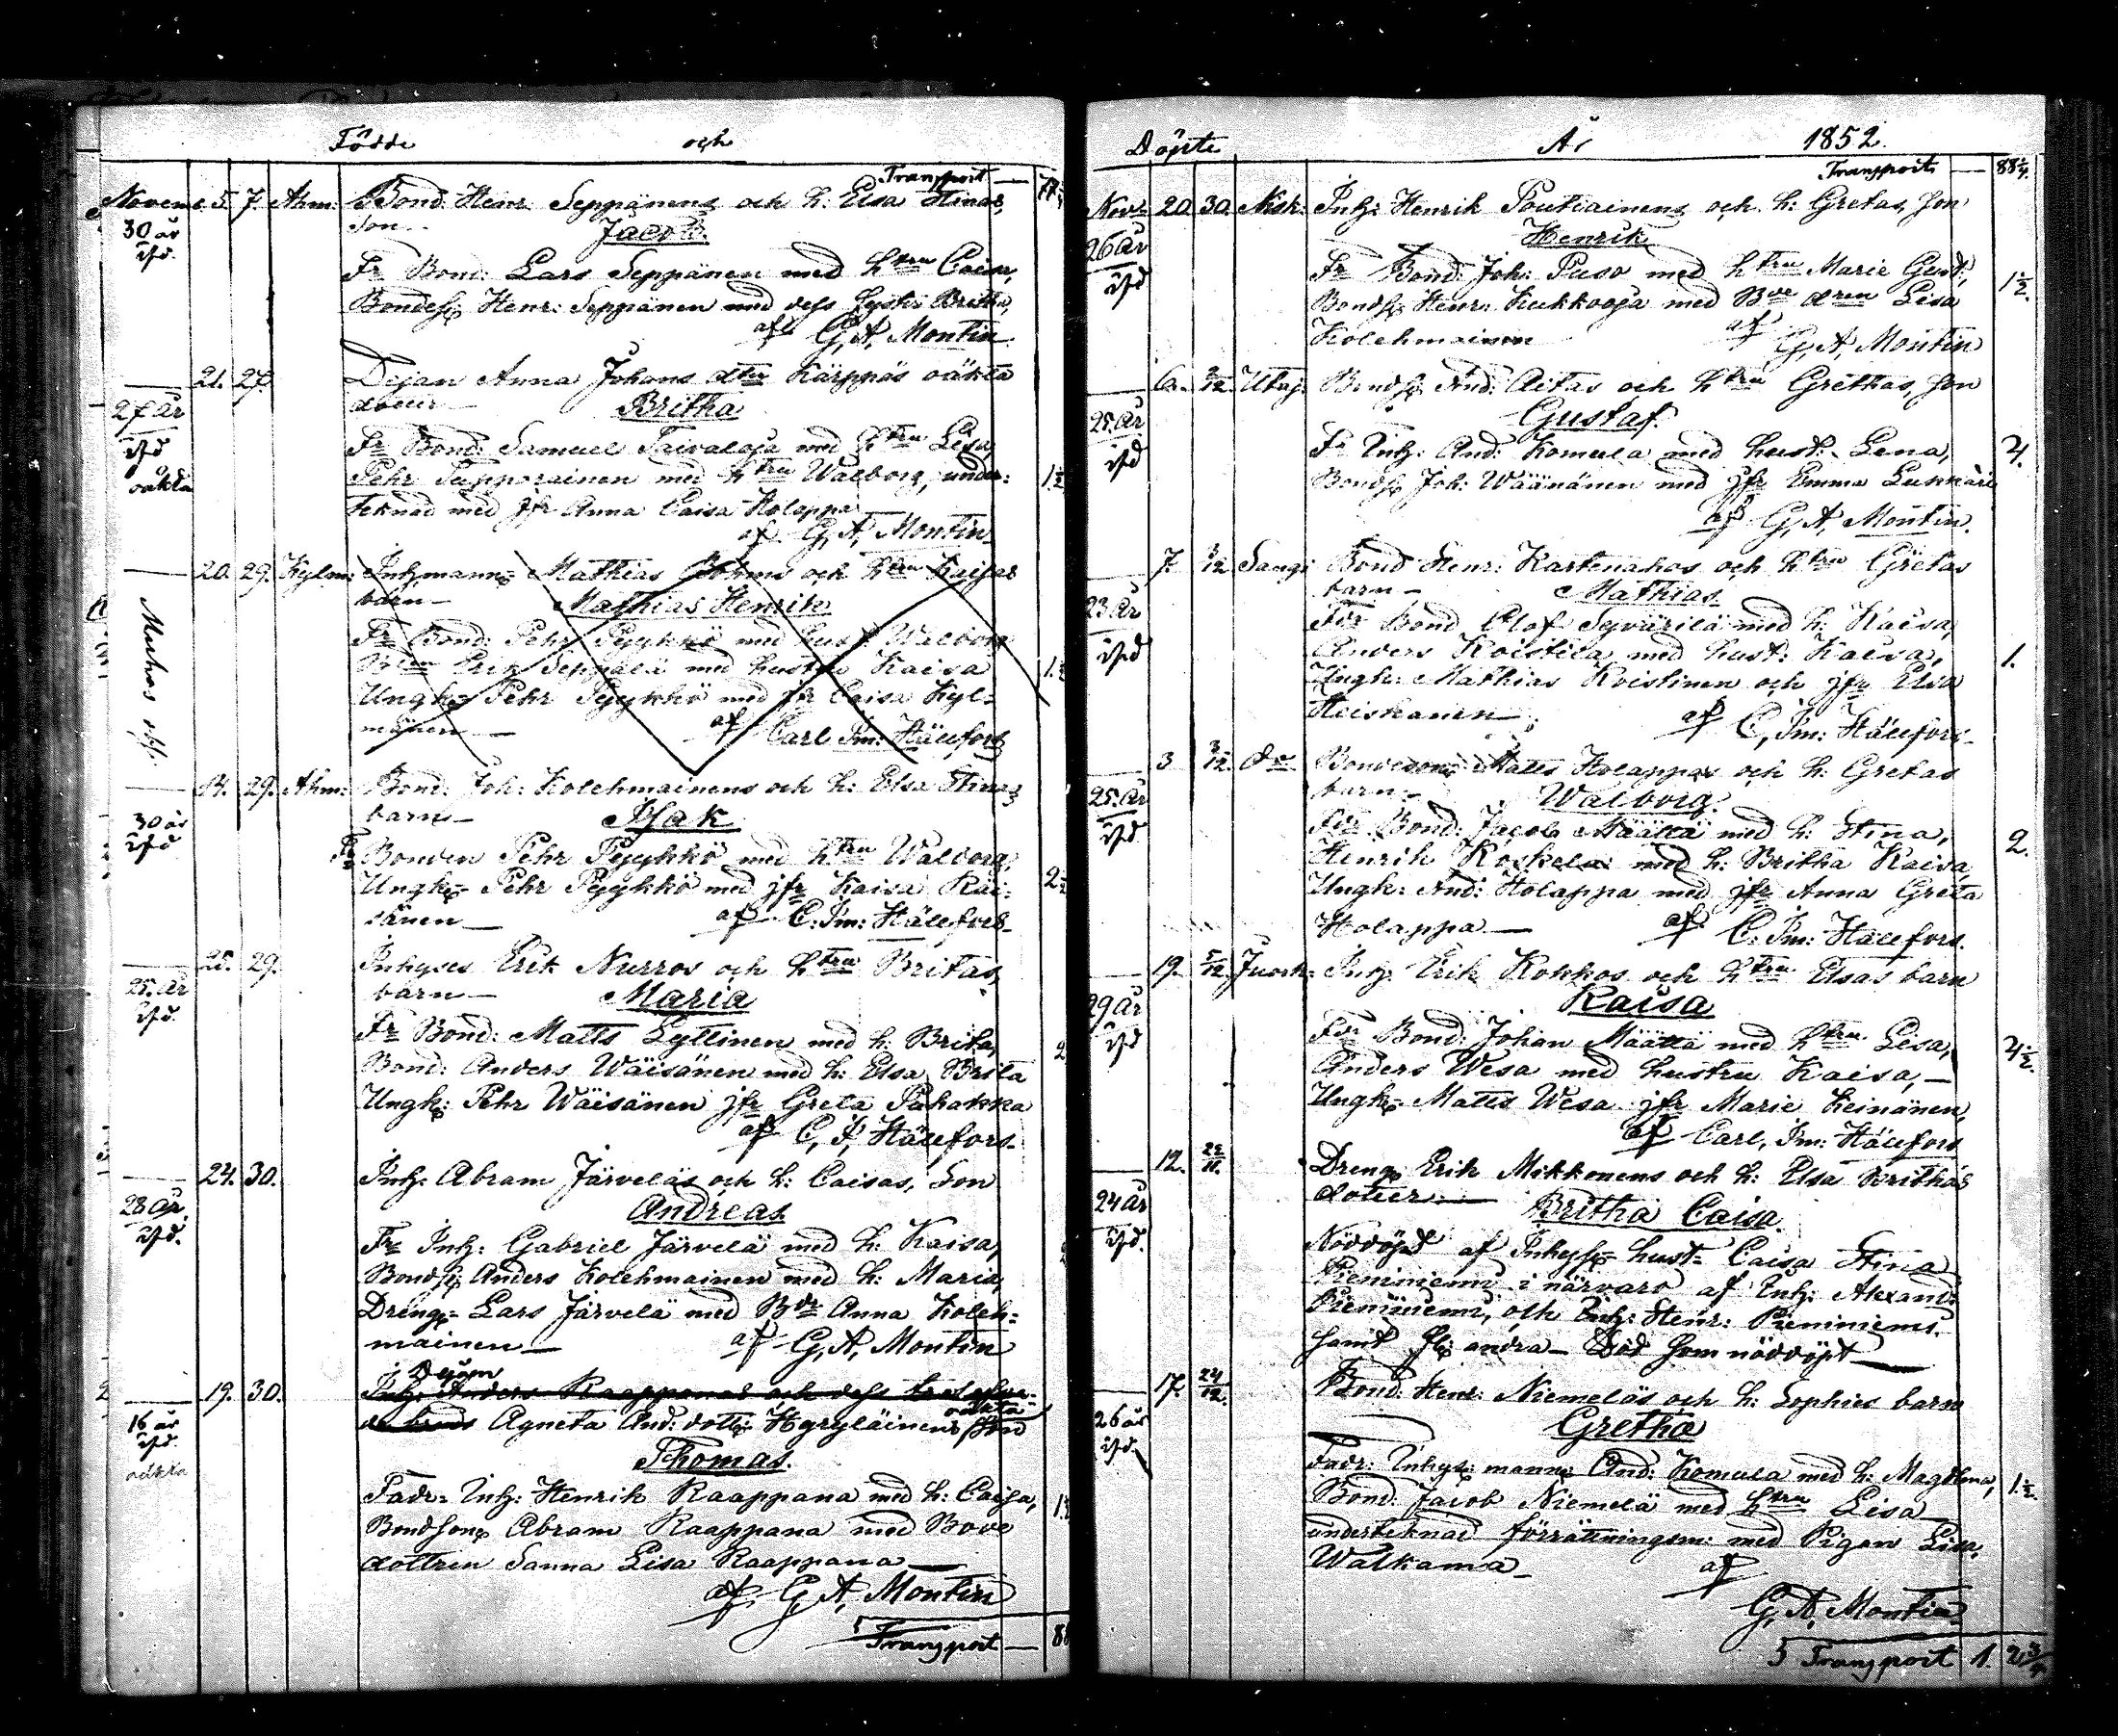 Födde och
Transport — 77
Novemb. 5. 7. Ahm: Bond. Henr. Seppänens och h: Elsa Stinas,
30 år son Jacob.
ifd. Fr Bond: Lars Seppänen med htru Caisa,
Bondes: Henr: Seppänen med dess syster Britha,
af G, A, Montin
21. 27. Dejan Anna Johans dter Kärppäs oäkta
27 år dotter — Britha
ifd Fr Bond: Samuel Taivaloja med htru Lisa,
oäkta Pehr Tapporainen med htru Walborg, under: 1½
teknad med jfr Anna Caisa Holappa
af G, A, Montin
20. 29. Kylm: Inhmanns Mathias Böhms och htru Kaisas
Muhos barn — Mathias Henrik
Fr Bond: Pehr Pyykkö med hust: Walborg
Erik Seppälä med hustru Kaisa
Ungk: Pehr Pyykkö med jfr Caisa Kyl=
mänen — af Carl Im: Hällfors
14. 29. Ahm: Bond: Joh: Kolehmainens och h: Elsa Stinas
30 år barn — Isak
ifd Fr Bonden Pehr Pyykkö med htru Walborg,
Ungk: Pehr Pyykkö med jfr Kaisa Räi: 2½
sänen — af C. Im: Hällfors
25. 29. Inhyses Erik Nurros och htru Britas,
25. år barn — Maria
ifd. Fr Bond: Matts Lyttinen med h: Brita,
Bond: Anders Wäisänen med h: Elsa Brita 2
Ungk: Pehr Wäisänen jfr Greta Pahakka
af C, I, Hällfors
24. 30. Inh: Abram Järveläs och h: Caisas, Son
28 år Andreas.
ifd. Fr Inh: Gabriel Järvelä med h: Kaisa,
Bonds: Anders Kolehmainen med h: Maria,
Dreng: Lars Järvelä med Bdr Anna Koleh=
mainen — af G, A, Montin
Dejan
19. 30. Inh: Anders Raappanas och dess trolofva-
oäkta
16 år Agneta And: dotter Hyryläinens Son
ifd. oäkta Thomas.
Fadr: Inh: Henrik Raappana med h: Caisa,
Bondson Abram Raappana med Bonde
dottren Sanna Lisa Raappana —
af G, A, Montin
Transport — 88
Döpte År 1852.
Transport — 88¼
Novr 20. 30. Nisk: Inh: Henrik Poutiainens och h: Gretas, Son
26 år Henrik
ifd Fr Bond: Joh: Puso med htru Marie Gust:, 1½.
Bonds: Henr: Kukkooja med Bde dren Lisa
Kolehmainen af G, A, Montin
6. 2/12 Utaj: Bonds: And: Aitas och htru Grethas, Son
25. år Gustaf.
ifd Fr Inh: And: Komula med hust: Lena, 4.
Bonds: Joh: Wäänänen med jfr Emma Lukkari
af G, A, Montin.
7. 3/12 Sang: Bond Henr: Kartenahos och htru Gretas
23 år barn — Mathias.
ifd Fdr Bond Olof Syvärilä med h: Kaisa,
Anders Koistila med hust: Kaisa, 1.
Ungk: Mathias Koistinen och jfr Elsa
Heiskanen — af C, Im: Hällfors
3 3/12 do Bondeson: Matts Holappas och h: Gretas
25. år barn — Walborg.
ifd Fdr Bond: Jacob Määttä med h: Stina, 2.
Henrik Koskela med h: Britha Kaisa,
Ungk: And: Holappa med jfr Anna Greta
Holappa — af C. Im: Hällfors.
19. 5/12. Juork: Inh: Erik Kokkos och htru Elsas barn
29 år Kaisa
ifd Fdr Bond: Johan Määttä med htru Lisa, 4½.
Anders Wesa med hustru Kaisa, —
Ungk: Matts Wesa jfr Marie Keinänen,
af Carl, Im: Hällfors
12. Dreng Erik Mikkonens och h: Elsa Brithas
24 år dotter — Britha Caisa.
ifd. Nöddöpt af Inhyses hust: Caisa Stina
Pieniniemi i närvaro af Inh: Alexand:
Pieniniemi, och Inh: Henr: Pieniniemi
samt fl: andra — Död som nöddöpt —
17. Bond: Henr: Niemeläs och h: Sophies barn
26 år Gretha
ifd. Fadr: Inhyses manne And: Komula med h: Magdlena, 1½.
Bond: Jacob Niemelä med htru Lisa
undertecknad förrättningsm: med Pigan Lisa,
Walkama — af
G, A, Montin
Transport 1. 2¾